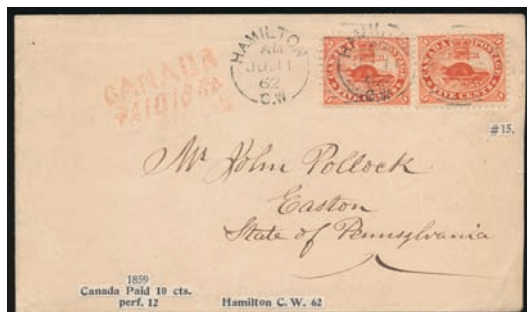 CANADA
PAID 10 Cts
HAMILTON
AM
JU 11
62
C.W
HAMILTON
C.W
CANADA POSTAGE
FIVE CENTS
CANADA POSTAGE
FIVE CENTS
#15.
Mr John Pollock
Easton
State of Pennsylvania
1859
Canada Paid 10 cts.
perf. 12
Hamilton C. W. 62